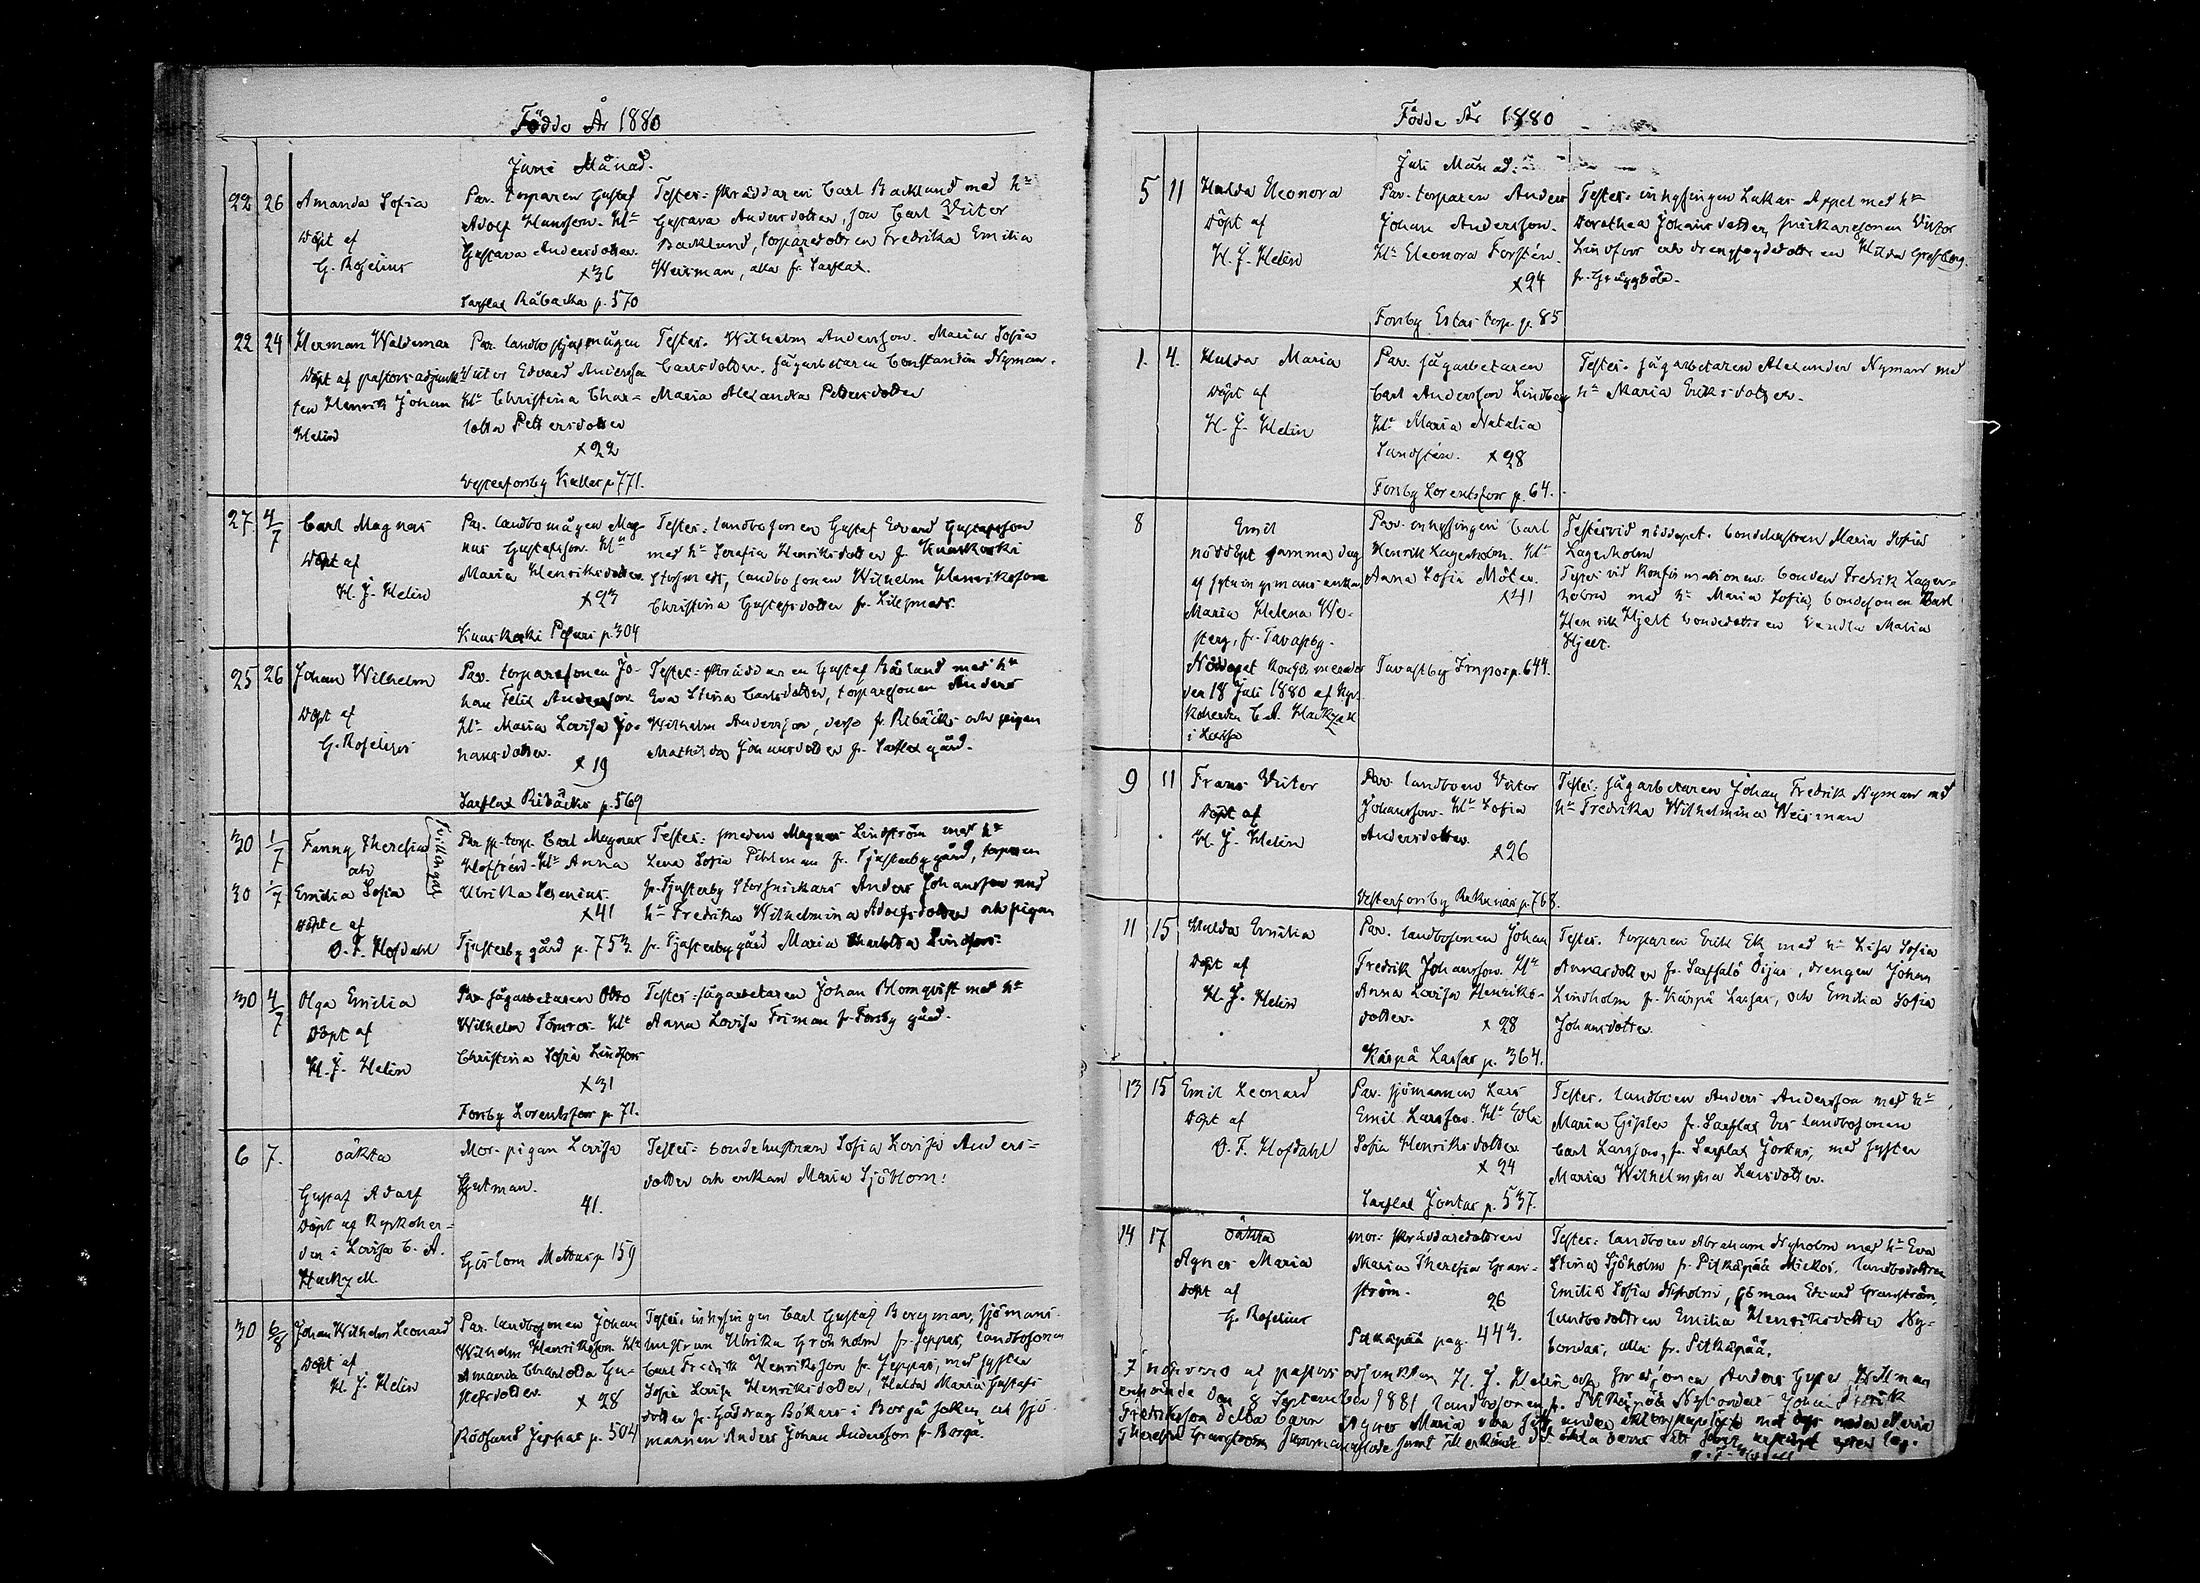 Födde År 1880
Juni Månad.
22 26 Amanda Sofia
Döpt af
G. Roselius
Par. torparen Gustaf
Adolf Hansson. H:u
Gustava Andersdotter.
x36
Sarflax Råbacka p. 570
Testes: skräddaren Carl Backlund med h:u
Gustava Andersdotter, son Carl Victor
Backlund, torparedottren Fredrika Emilia
Weisman, alla fr. Sarflax.
22 24 Herman Waldemar
Döpt af pastorsadjunk-
ten Henrik Johan
Helin
Par. landbo
Victor Edvard Andersson
H:u Christina Char-
lotta Pettersdotter
x22
Vesterforsby Kallas p 771.
Testes. Wilhelm Andersson. Maria Sofia
Carlsdotter. Sågarbetaren Constantin Nyman.
Maria Alexandra Pettersdotter
27 4/7 Carl Magnus
Döpt af
H. J. Helin
Par. landbomågen Mag-
nus Gustafsson. H:u
Maria Henriksdotter.
x23
Kuuskoski p. 304
Testes: landbosonen Gustaf Edvard Gustafsson
med h:u Serafia Henriksdotter fr. Kuuskoski
landbosonen Wilhelm Henriksson
Christina Gustafsdotter fr.
25 26 Johan Wilhelm
Döpt af
G. Roselius
Par. torparesonen Jo-
han Felix Andersson.
H:u Maria Lovisa Jo-
hansdotter.
x 19
Sarflax Ribäcks p. 569
Testes: skräddaren Gustaf med h:u
Eva Stina Carlsdotter, torparesonen Anders
Wilhelm Andersson, fr. Ribäcks och pigan
Mathilda Johansdotter fr. Sarflax gård.
30 1/7 Fanny Theresia
och
30 1/7 Emilia Sofia
Tvillingar
Döpte af
O. F. Hofdahl
Par. sp. torp. Carl Magnus
H:u Anna
Ulrika Serenius.
x41
Tjusterby gård p. 753
Testes: smeden Magnus Lindström med h:u
Lena Sofia Pihlman fr. Tjusterby gård, torparen
fr. Tjusterby Storsnickars Anders Johansson med
h:u Fredrika Wilhelmina Adolfsdotter och pigan
fr. Tjusterby gård Maria Charlotta Lindfors.
30 4/7 Olga Emilia
Döpt af
H. J. Helin
Par. sågarbetaren Otto
Wilhelm Törnroos. H:u
Christina Sofia Lindfors
x31
Forsby Lorentsfors p 71.
Testes: sågarbetaren Johan Blomqvist med h:u
Anna Lovisa Friman fr. Forsby gård.
6 7. oäkta
Gustaf Adolf
Döpt af Kyrkoher-
den i Lovisa C. A.
Hackzell.
Mor. pigan Lovisa
Gutman.
41.
Gislom Mattas p 159
Testes: bondehustrun Sofia Lovisa Anders-
dotter och enkan Maria Sjöblom.
30 6/8 Johan Wilhelm Leonard
Döpt af
H. J. Helin
Par. landbosonen Johan
Wilhelm Henriksson. H:u
Amanda Charlotta Gu-
stafsdotter.
x 28
Rödsund Jeppas p. 504
Testes: inhysingen Carl Gustaf Bergman, sjömans-
hustrun Ulrika Grönholm fr. Jeppas, landbosonen
Carl Fredrik Henriksson fr. Jeppas, med syster
Sofia Lovisa Henriksdotter, Hulda Maria Gustafs-
dotter fr. Gäddrag Bökars i Borgå socken, och sjö-
mannen Anders Johan Andersson fr. Borgå.
Födde År 1880
Juli Månad.
5 11 Hulda Eleonora
Döpt af
H. J. Helin
Par. torparen Anders
Johan Andersson.
H:u Eleonora Forstén.
x24
Forsby Estas torp. p. 85
Testes. inhysingen Lukas Appel med h:u
Dorothea Johansdotter, snickaresonen Victor
Lindfors och drengfogdedottren Hilda Grossberg
fr. Greggböle.
1. 4. Hulda Maria
Döpt af
H. J. Helin
Par. sågarbetaren
Carl Andersson Lindberg
H:u Maria Natalia
Sundstén. x28
Forsby Lorentsfors p. 64.
Testes. sågarbetaren Alexander Nyman med
h:u Maria Eriksdotter.
8 Emil
nöddöpt samma dag
af sytningsmansenkan
Maria Helena We-
sterg, fr. Tavastby.
Nöddopet konfirmerades
den 18 Juli 1880 af Kyr-
koherden C. A. Hackzell
i Lovisa
Par. inhysingen Carl
Henrik Lagerholm. H:u
Anna Sofia Möller.
x41
Tavastby Impos p. 644.
Testes vid nöddopet. bondehustrun Maria Sofia
Lagerholm
Testes vid konfirmationen. bonden Fredrik Lager-
holm med h:u Maria Sofia, bondesonen Carl
Henrik Hjelt bondedottren Vendla Maria
Hjelt.
9 11 Frans Victor
Döpt af
H. J. Helin
Par. landboen Victor
Johansson. H:u Sofia
Andersdotter.
x26
Vesterforsby p. 768.
Testes. sågarbetaren Johan Fredrik Nyman med
h:u Fredrika Wilhelmina Weisman
11 15 Hulda Emilia
Döpt af
H. J. Helin
Par. landbosonen Johan
Fredrik Johansson. H:u
Anna Lovisa Henriks-
dotter.
x 28
Kärpä Lassas p. 364.
Testes. torparen Erik Ek med h:u Lisa Sofia
Annasdotter fr. Sarfsalö Öijas, drengen Johan
Lindholm fr. Kärpä Lassas, och Emilia Sofia
Johansdotter.
13 15 Emil Leonard
Döpt af
O. F. Hofdahl
Par. sjömannen Lars
Emil Larsson. H:u Eva
Sofia Henriksdotter
x 24
Sarflax Jontas p. 537.
Testes. landboen Anders Andersson med h:u
Maria Gisler fr. Sarflax landbosonen
Carl Larsson, fr. Sarflax Jorkas, med syster
Maria Wilhelmina Larsdotter.
14 17 oäkta
Agnes Maria
Döpt af
G. Roselius
mor: skräddaredottren
Maria Theresia Gran-
ström.
26
Pitkäpää pag. 443.
Testes: landboen Abraham Nyholm med h:u Eva
Stina Sjöholm fr. Pitkäpää Mickos, landbodottren
Emilia Sofia Nyholm, sjöman Edvard Granström,
landbodottren Emilia Henriksdotter Ny-
bondas, alla fr. Pitkäpää.
I närvaro af pastorsadjunkten H. J. Helin och Anders Hellman
erkände den 8 September 1881 landbosonen fr. Pitkäpää Nybondas Johan Henrik
Fredriksson detta barn Agnes Maria vara under äktenskapslöfte med dess moder Maria
Theresia Granström